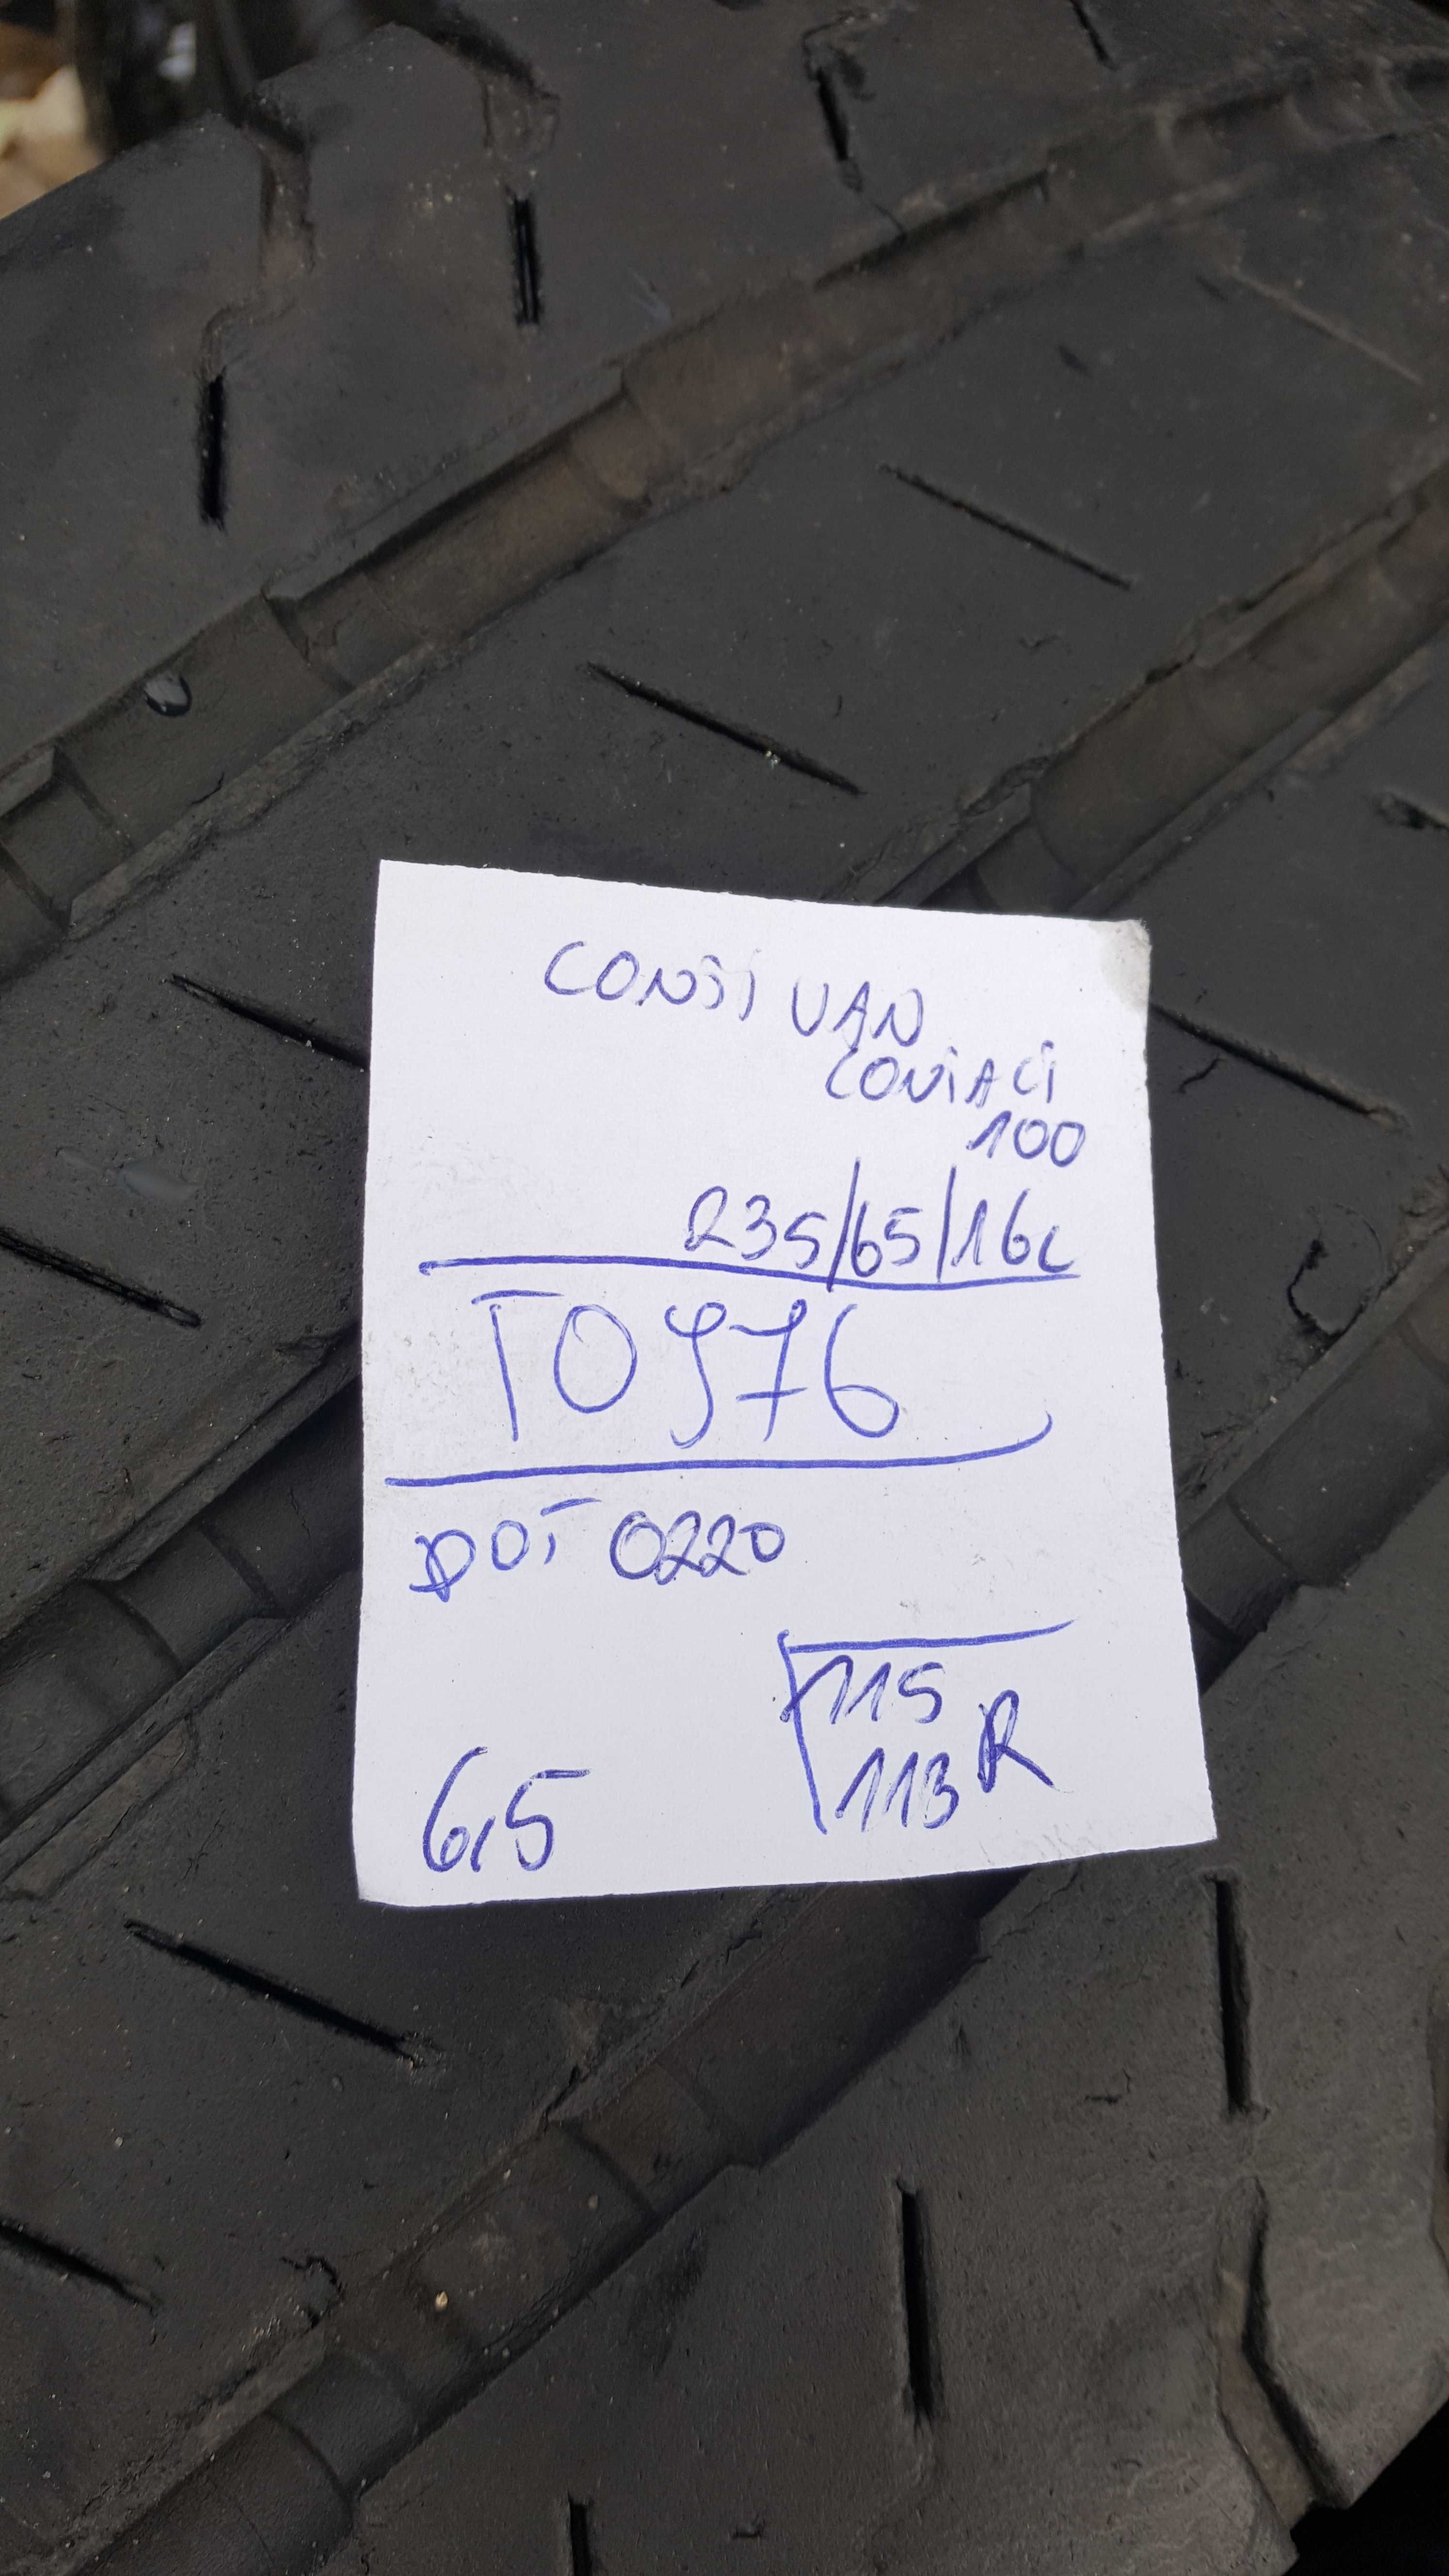 CONTI VAN
CONTACT
100
235/65/16C
TO976
DOT 0220
115
113 R
6,5